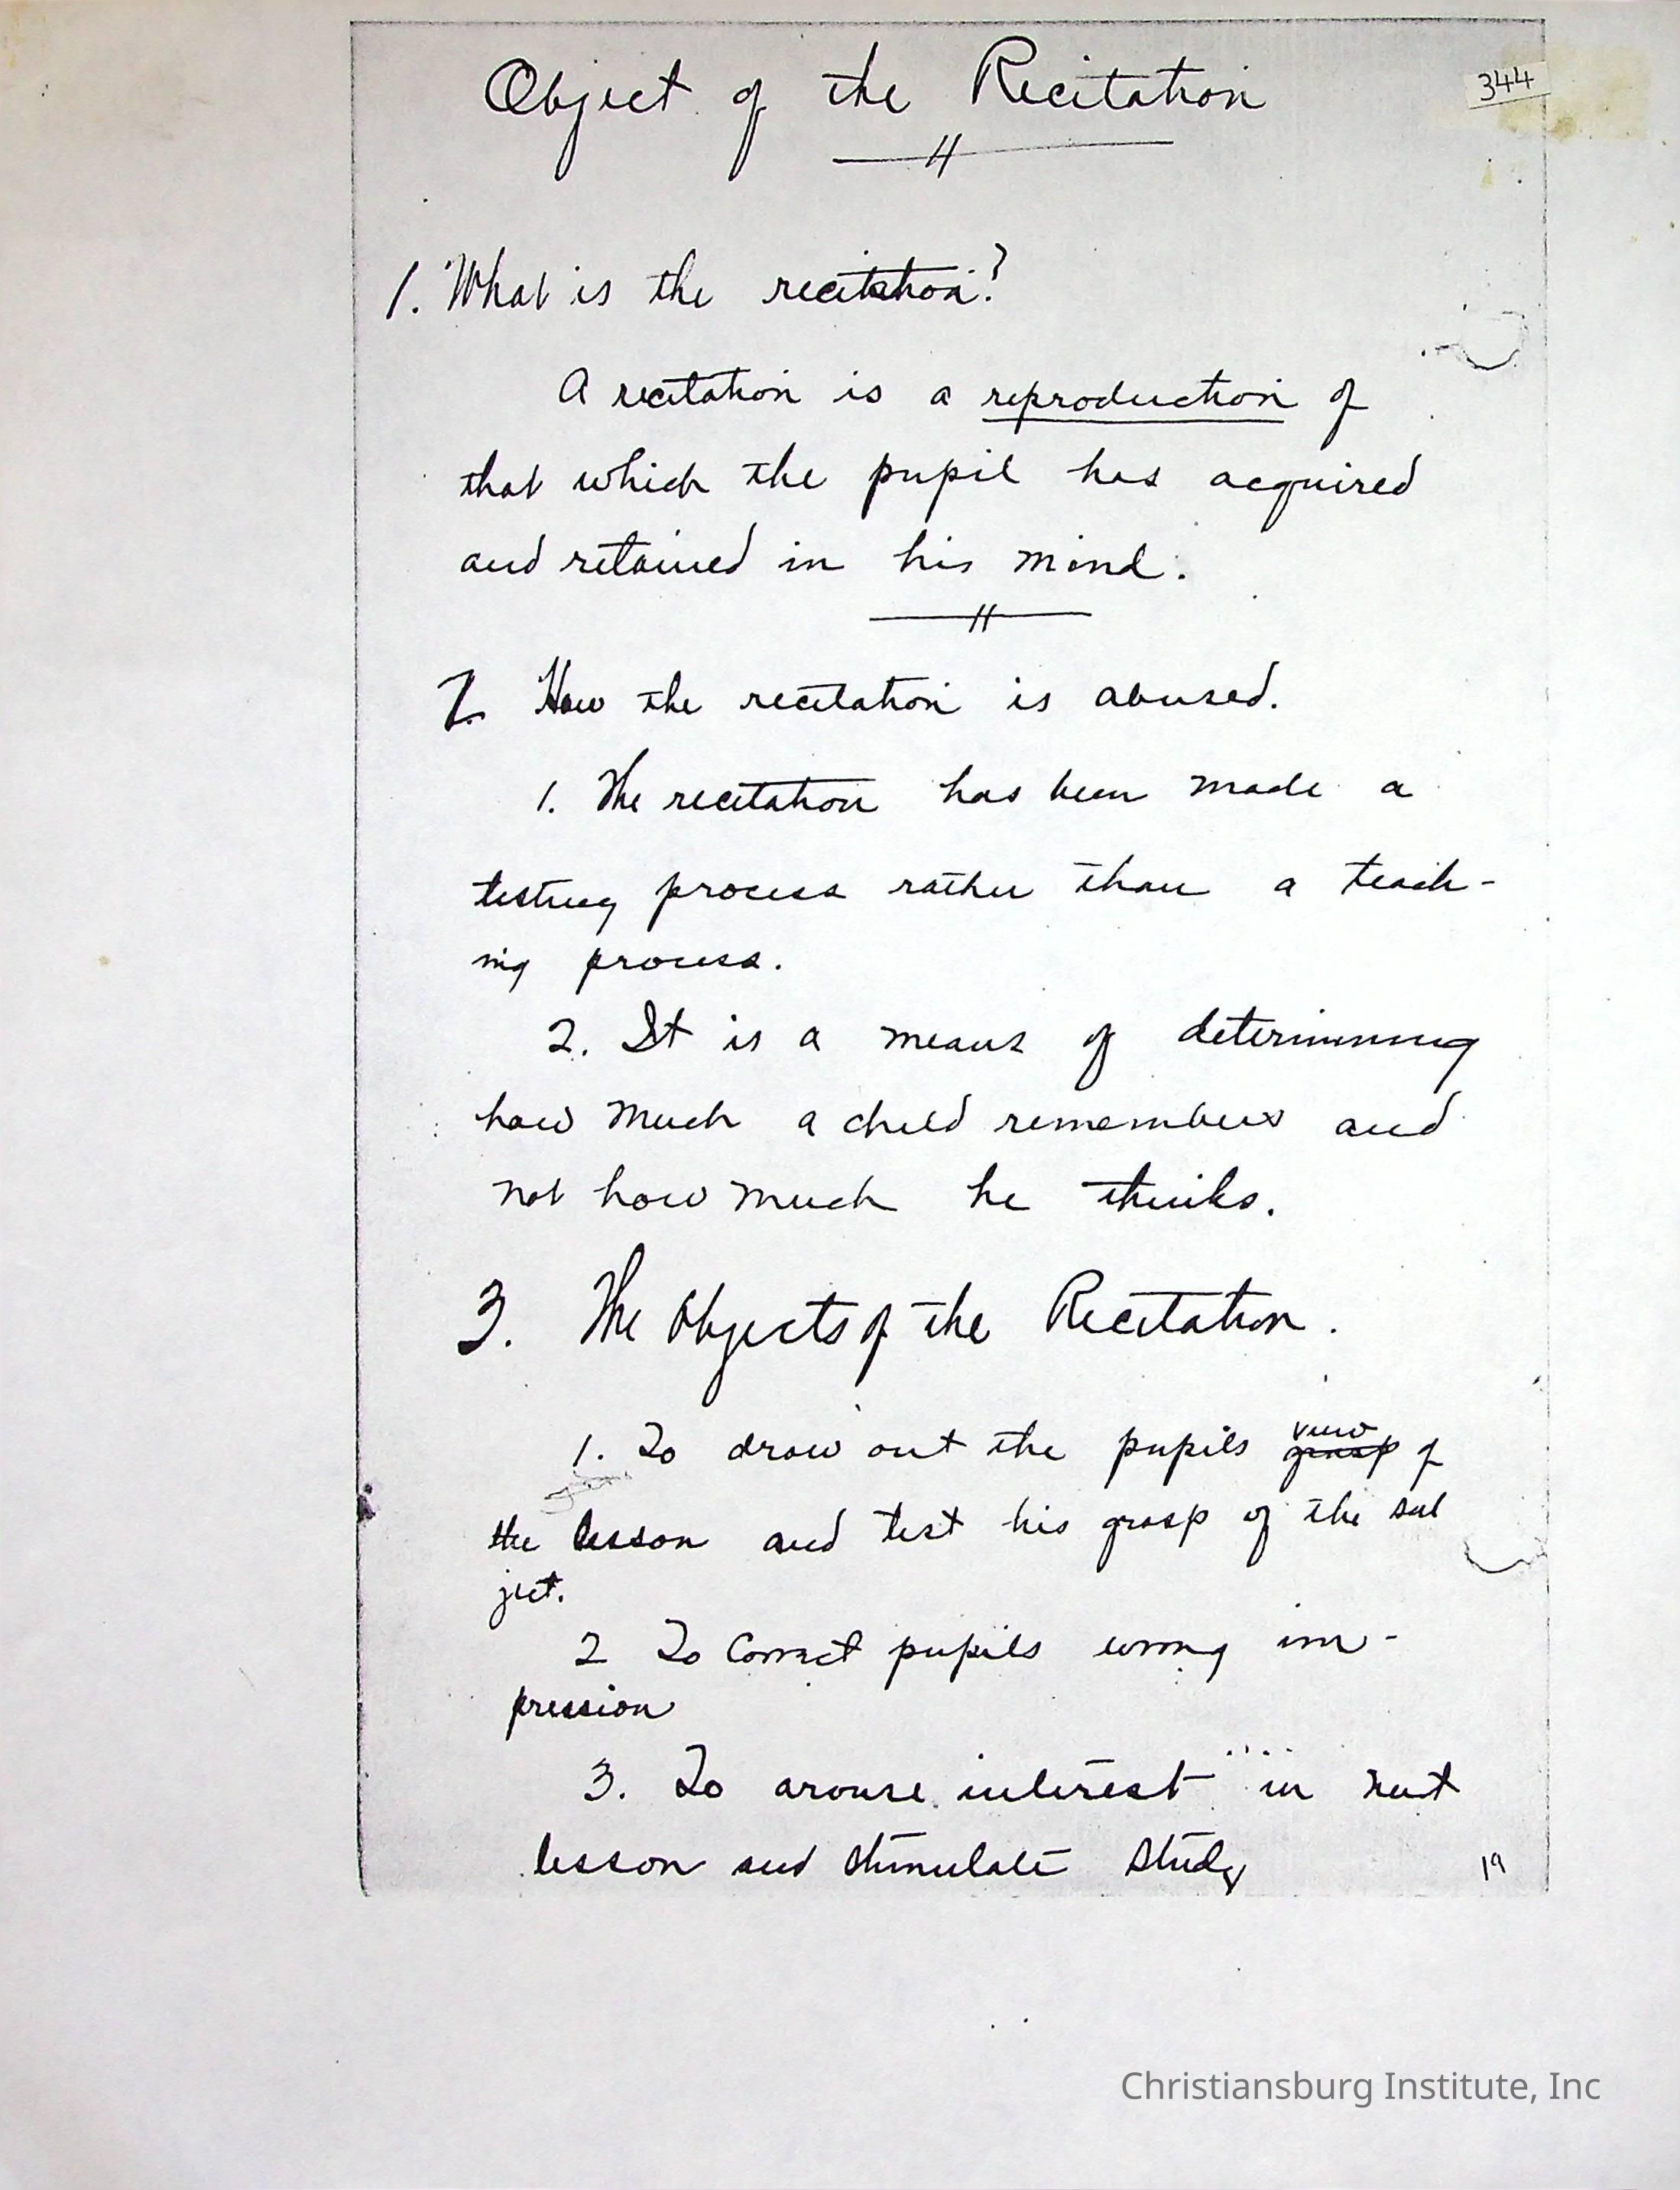 Object of the Recitation
344
1. What is the recitation?
A recitation is a reproduction of
that which the pupil has acquired
and retained in his mind.
2. How the recitation is abused.
1. The recitation has been made a
testing process rather than a teach-
ing process.
2. It is a means of determining
how much a child remembers and
not how much he thinks.
3. The Objects of the Recitation.
1. To draw out the pupils view grasp of
the lesson and test his grasp of the sub
ject.
2 To Correct pupils wrong im-
pression
3. To arouse interest in next
lesson and stimulate study
19
Christiansburg Institute, Inc